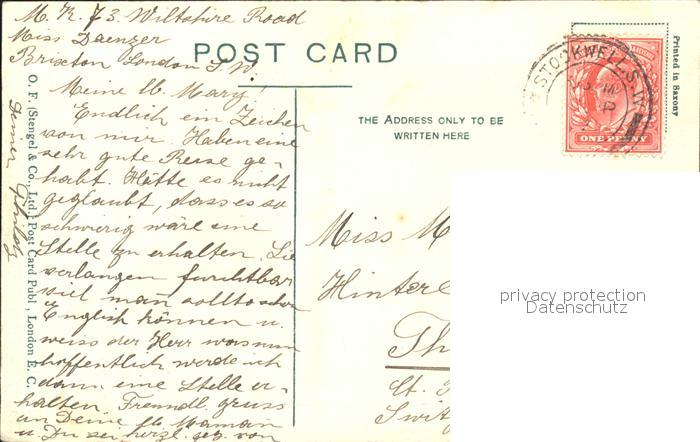 M. K. 73. Wiltshire Road
Miss Daenzer
Brixton London S.W.
POST CARD
Meine lb. Mary!
Endlich ein Zeichen
von mir. Haben eine
sehr gute Reise ge-
habt. Hätte es nicht
geglaubt, dass es so
schwierig wäre eine
Stelle zu erhalten. Sie
verlangen furchtbar
viel man sollte schon
Englisch können u.
weiss der Herr was nun
hoffentlich werde ich
dann eine Stelle er-
halten. Freundl. gruss
an Deine lb. Maman
u. Du sei herzl. geg. von
Deiner
O. F. (Stengel & Co., Ltd.) Post Card Publ., London E. C.
THE ADDRESS ONLY TO BE
WRITTEN HERE
STOCKWELL S.W.
ONE PENNY
Printed in Saxony
Miss M
Hinter
Th
Ct.
Swit
privacy protection
Datenschutz